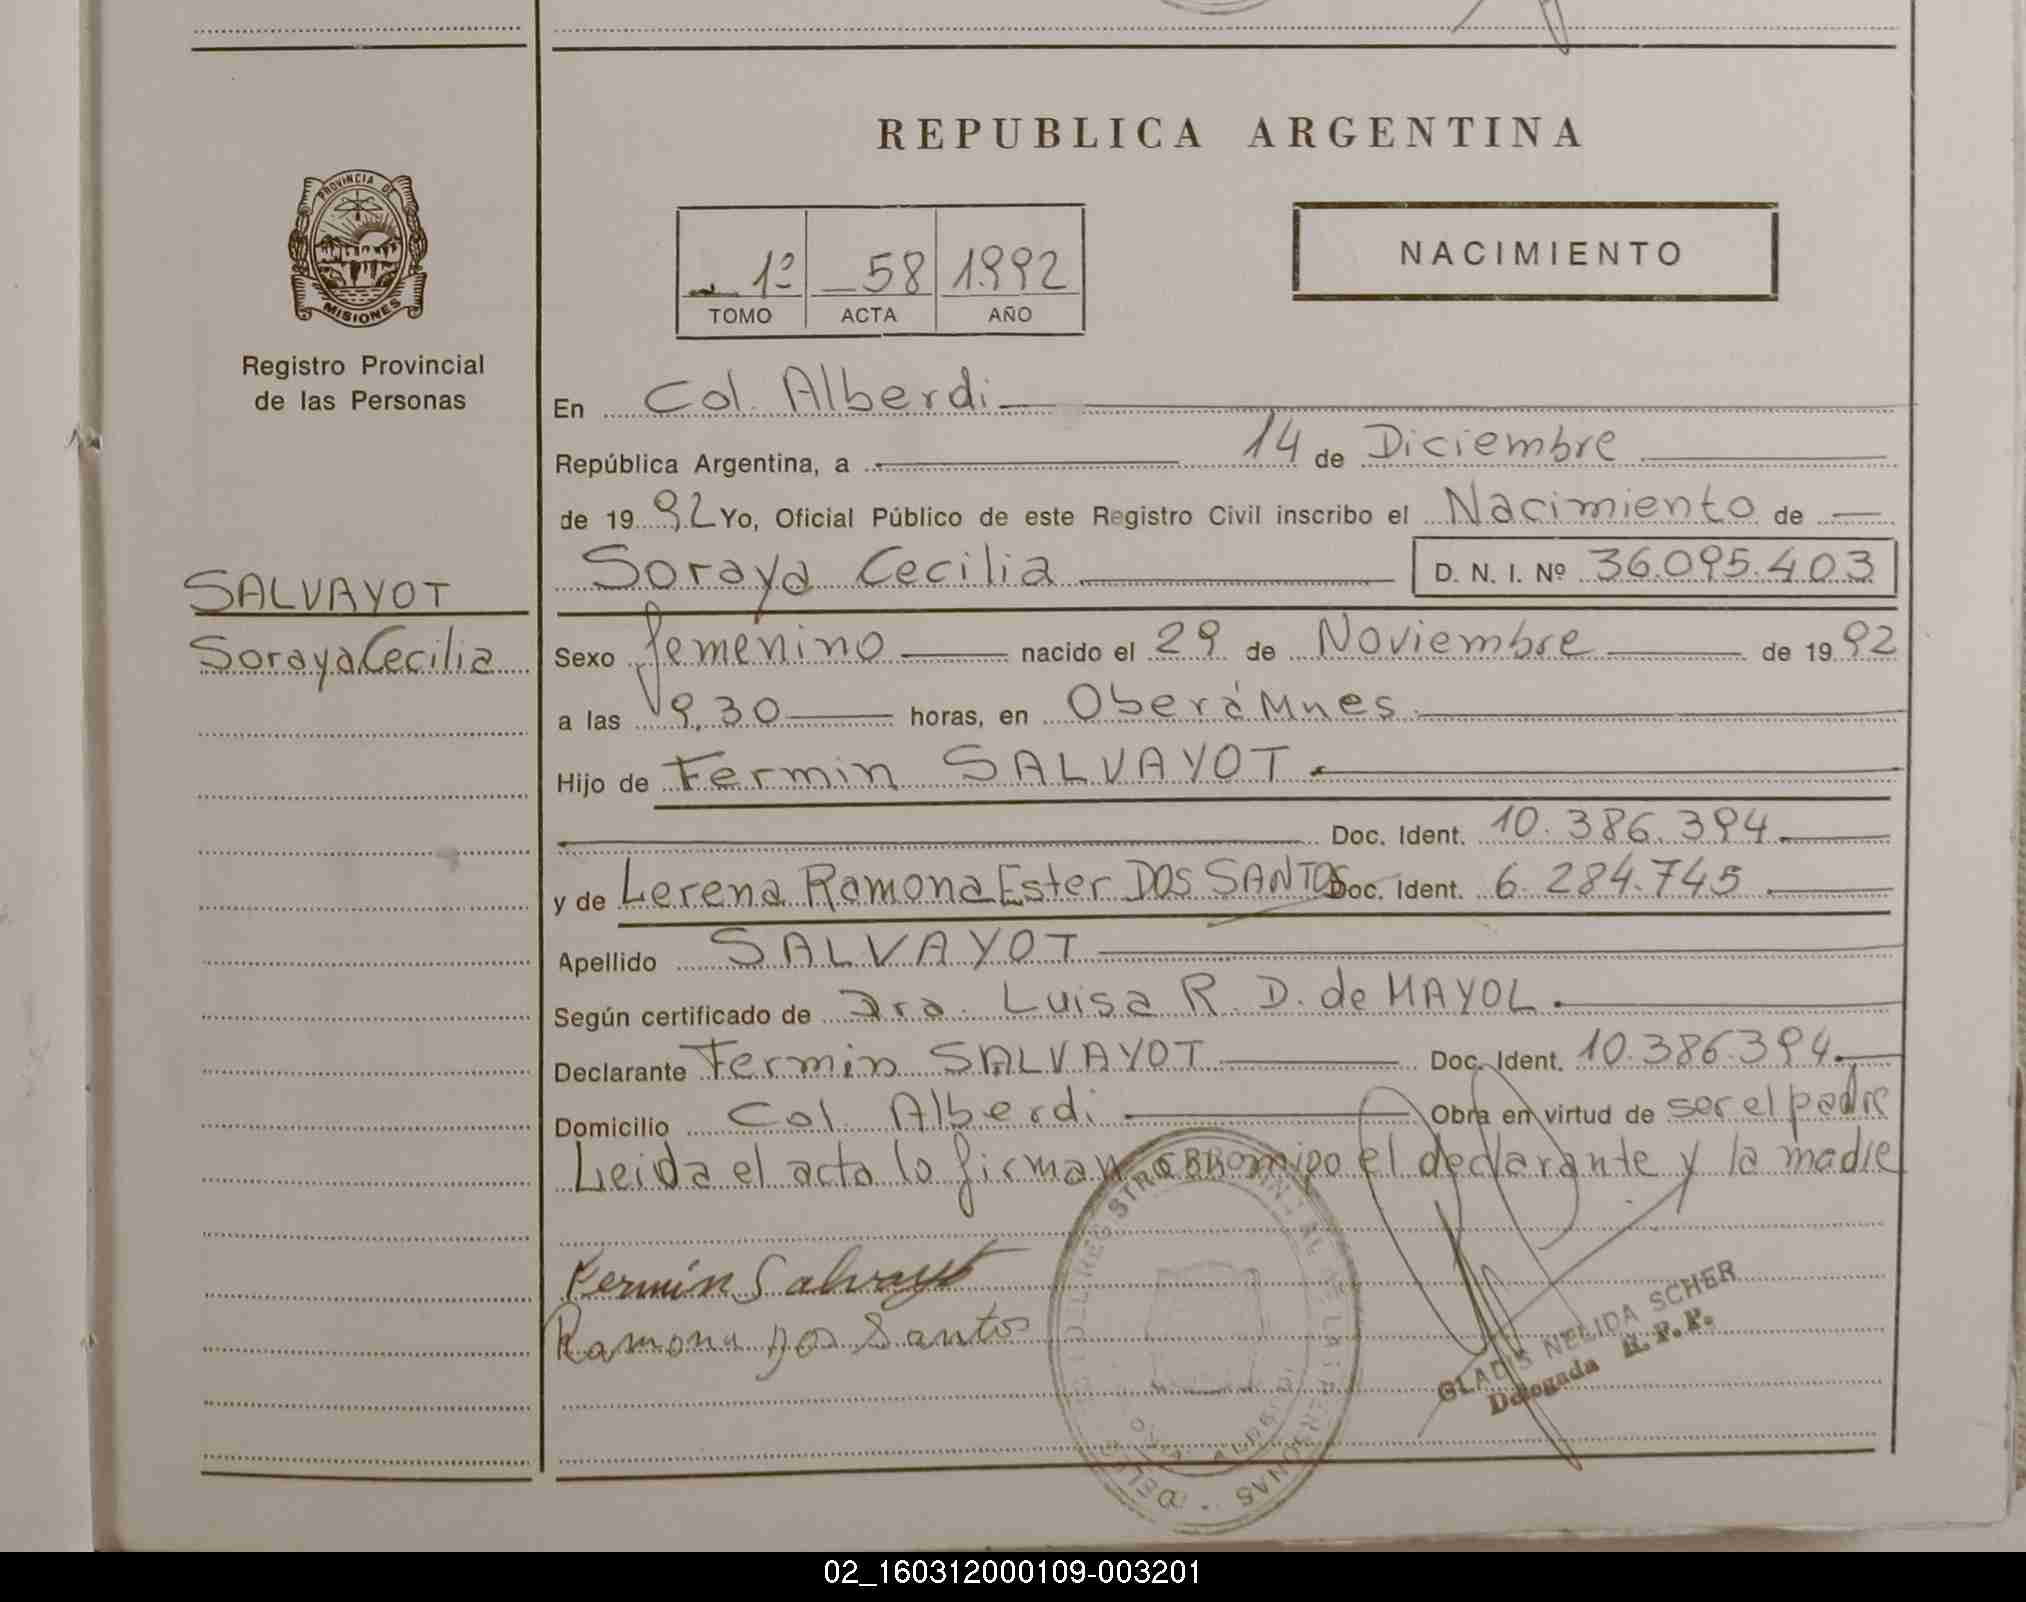 REPUBLICA ARGENTINA
PROVINCIA DE
MISIONES
Registro Provincial
de las Personas
NACIMIENTO
1º 58 1992
TOMO ACTA AÑO
En Col. Alberdi
República Argentina, a 14 de Diciembre
de 19 92 Yo, Oficial Público de este Registro Civil inscribo el Nacimiento de
Soraya Cecilia D. N. I. Nº 36.095.403
SALVAYOT
Soraya Cecilia
Sexo femenino nacido el 29 de Noviembre de 19 92
a las 9,30 horas, en Oberá Mnes
Hijo de Fermin SALVAYOT
Doc. Ident. 10.386.394
y de Lerena Ramona Ester DOS SANTOS Doc. Ident. 6.284.745
Apellido SALVAYOT
Según certificado de Dra. Luisa R. D. de MAYOL
Declarante Fermin SALVAYOT Doc. Ident. 10.386.394
Domicilio Col. Alberdi Obra en virtud de ser el padre
Leida el acta lo firman conmigo el declarante y la madre
Fermín Salvayot
Ramona Dos Santos
GLADIS NELIDA SCHER
Delegada R.P.P.
02_160312000109-003201